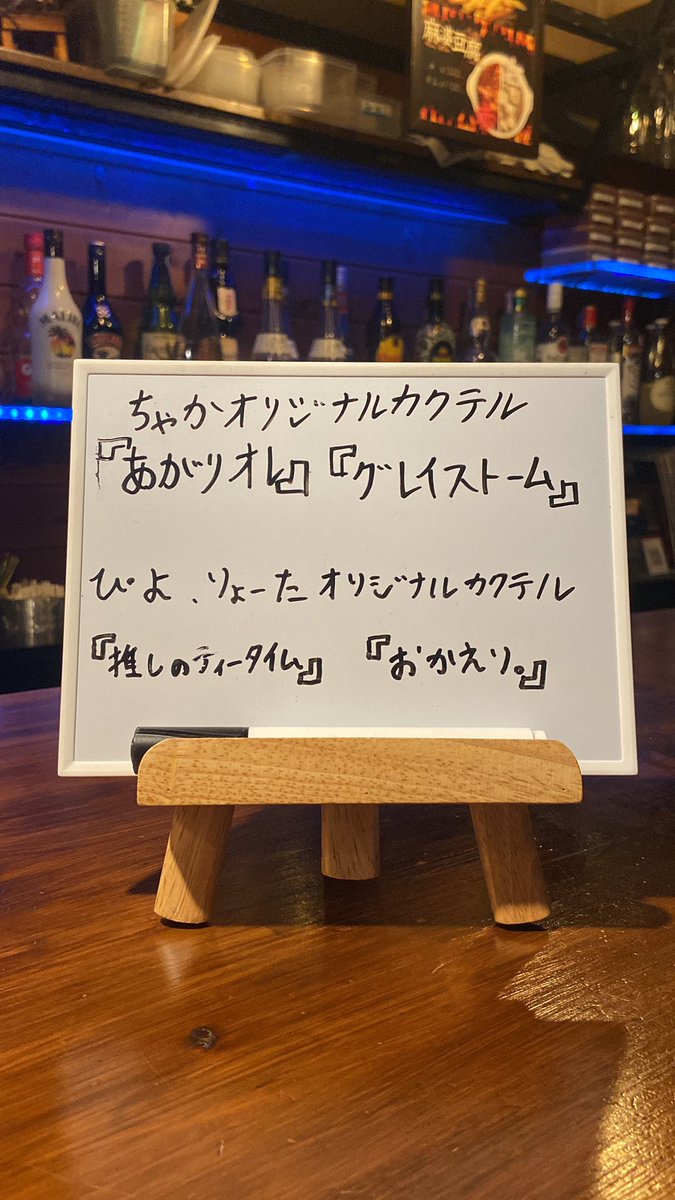 麻婆豆腐
MALIBU
ちゃかオリジナルカクテル
『あがりオレ』『グレイストーム』
ぴよ、りょーたオリジナルカクテル
『推しのティータイム』 『おかえり。』